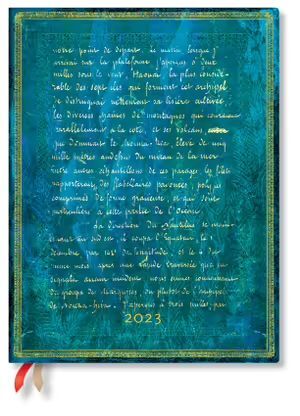 notre point de départ. Le matin lorsque j'
arrivai sur la plateforme j'aperçus à deux
milles sous le vent, Haouaï la plus considé-
rable des sept iles qui forment cet archipel
Je distinguai nettement sa lisière cultivée
les diverses chaînes de montagnes qui
parallèlement à la côte, et ses volcans
que dominait le Mouna- élevé de cinq
mille mètres audessus du niveau de la mer
entre autres échantillons de ces parages, les filets
rapportèrent des flabellaires pavonées, polypes
comprimés de forme gracieuse, et qui sont
particuliers à cette partie de l'Océan.
La direction du Nautilus se main-
au sud est, il coupa l'Equateur le 1er
décembre, par 142° de longitude, et le 4 du
même mois, après une rapide traversée que
signala aucun incident, nous eûmes connaissance
du groupe des Marquises,
de Nouka-hiva. J'aperçus à trois milles, par
2023